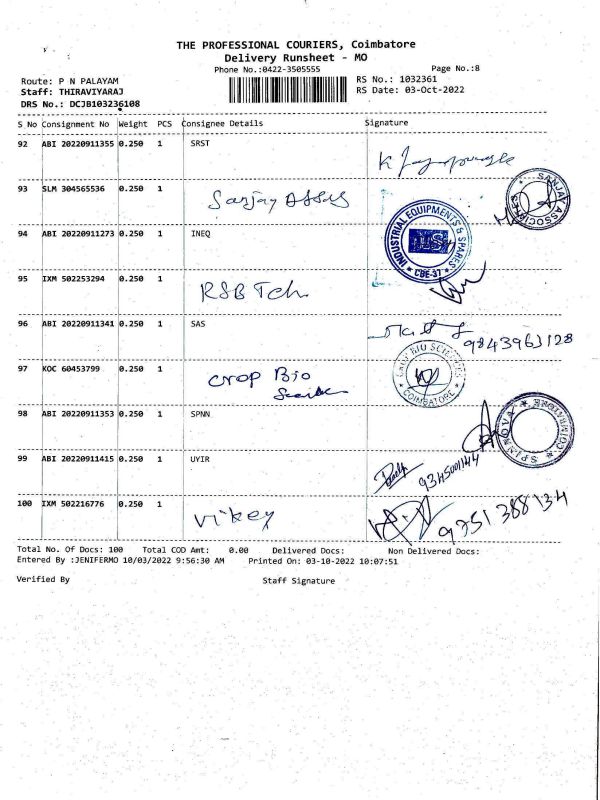 THE PROFESSIONAL COURIERS, Coimbatore
Delivery Runsheet - MO
Phone No.:0422-3505555
Page No.:8
Route: P N PALAYAM
RS No.: 1032361
Staff: THIRAVIYARAJ
RS Date: 03-Oct-2022
DRS No.: DCJB103236108
S No Consignment No Weight PCS Consignee Details Signature
92 ABI 20220911355 0.250 1 SRST
93 SLM 304565536 0.250 1 Sanjay Assos
SANJAY ASSOCIATES
94 ABI 20220911273 0.250 1 INEQ
INDUSTRIAL EQUIPMENTS & SPARES
* CBE-37 *
95 IXM 502253294 0.250 1 RSB Tch
96 ABI 20220911341 0.250 1 SAS
9843963128
97 KOC 60453799 0.250 1 crop Bio
CROP BIO SCIENCES
* COIMBATORE *
98 ABI 20220911353 0.250 1 SPNN
* SPINNOVA * COIMBATORE
99 ABI 20220911415 0.250 1 UYIR
9345001144
100 IXM 502216776 0.250 1 Vikey
9751388134
Total No. Of Docs: 100 Total COD Amt: 0.00 Delivered Docs: Non Delivered Docs:
Entered By :JENIFERMO 10/03/2022 9:56:30 AM Printed On: 03-10-2022 10:07:51
Verified By Staff Signature